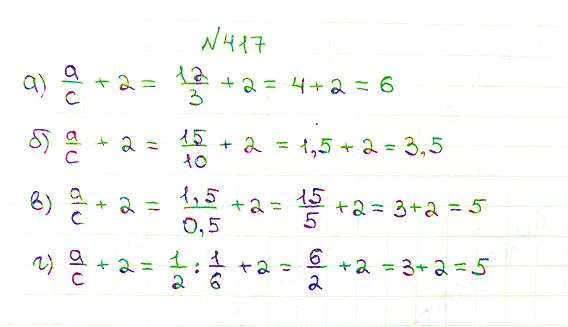 №417
а) a/c + 2 = 12/3 + 2 = 4 + 2 = 6
б) a/c + 2 = 15/10 + 2 = 1,5 + 2 = 3,5
в) a/c + 2 = 1,5/0,5 + 2 = 15/5 + 2 = 3 + 2 = 5
г) a/c + 2 = 1/2 : 1/6 + 2 = 6/2 + 2 = 3 + 2 = 5